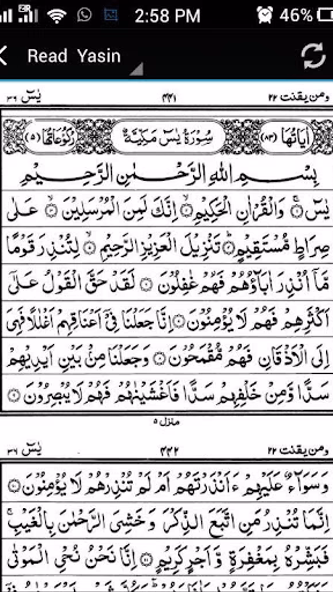 2:58 PM 46%
Read Yasin
يٰسٓ ٣٦ ٤٤١ ومن يقنت ٢٢
اٰيَاتُهَا (٨٣) سُوْرَةُ يٰسٓ مَكِّيَّةٌ رُكُوْعَاتُهَا (٥)
بِسْمِ اللّٰهِ الرَّحْمٰنِ الرَّحِيْمِ
يٰسٓ ۝١ وَالْقُرْاٰنِ الْحَكِيْمِ ۝٢ اِنَّكَ لَمِنَ الْمُرْسَلِيْنَ ۝٣ عَلٰى
صِرَاطٍ مُّسْتَقِيْمٍ ۝٤ تَنْزِيْلَ الْعَزِيْزِ الرَّحِيْمِ ۝٥ لِتُنْذِرَ قَوْمًا
مَّاۤ اُنْذِرَ اٰبَآؤُهُمْ فَهُمْ غٰفِلُوْنَ ۝٦ لَقَدْ حَقَّ الْقَوْلُ عَلٰۤى
اَكْثَرِهِمْ فَهُمْ لَا يُؤْمِنُوْنَ ۝٧ اِنَّا جَعَلْنَا فِيْۤ اَعْنَاقِهِمْ اَغْلٰلًا فَهِيَ
اِلَى الْاَذْقَانِ فَهُمْ مُّقْمَحُوْنَ ۝٨ وَجَعَلْنَا مِنْۢ بَيْنِ اَيْدِيْهِمْ
سَدًّا وَّمِنْ خَلْفِهِمْ سَدًّا فَاَغْشَيْنٰهُمْ فَهُمْ لَا يُبْصِرُوْنَ ۝٩
منزل ٥
يٰسٓ ٣٦ ٤٤٢ ومن يقنت ٢٢
وَسَوَآءٌ عَلَيْهِمْ ءَاَنْذَرْتَهُمْ اَمْ لَمْ تُنْذِرْهُمْ لَا يُؤْمِنُوْنَ ۝١٠
اِنَّمَا تُنْذِرُ مَنِ اتَّبَعَ الذِّكْرَ وَخَشِيَ الرَّحْمٰنَ بِالْغَيْبِ ۚ
فَبَشِّرْهُ بِمَغْفِرَةٍ وَّاَجْرٍ كَرِيْمٍ ۝١١ اِنَّا نَحْنُ نُحْيِ الْمَوْتٰى